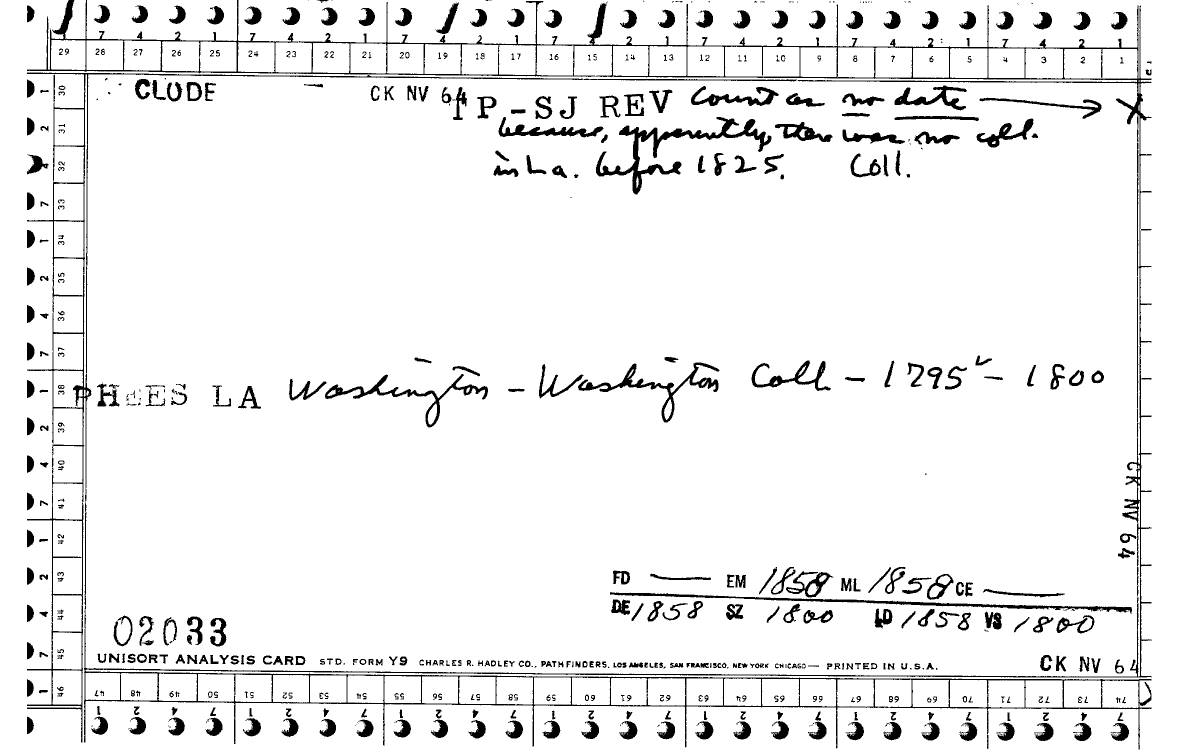 1 7 4 2 1 7 4 2 1 7 4 2 1 7 4 2 1 7 4 2 1 7 4 2 1 7 4 2 1
29 28 27 26 25 24 23 22 21 20 19 18 17 16 15 14 13 12 11 10 9 8 7 6 5 4 3 2 1
CLUDE — CK NV 64 TP-SJ REV Count as no date → X
because, apparently, there was no coll.
in La. before 1825. Coll.
PHEES LA Washington - Washington Coll - 1795 - 1800
CK NV 64
FD — EM 1858 ML 1858 CE —
DE 1858 SZ 1800 LD 1858 VS 1800
02033
UNISORT ANALYSIS CARD STD. FORM Y9 CHARLES R. HADLEY CO., PATHFINDERS, LOS ANGELES, SAN FRANCISCO, NEW YORK CHICAGO — PRINTED IN U.S.A. CK NV 64
30 31 32 33 34 35 36 37 38 39 40 41 42 43 44 45 46
47 48 49 50 51 52 53 54 55 56 57 58 59 60 61 62 63 64 65 66 67 68 69 70 71 72 73 74
1 2 4 7 1 2 4 7 1 2 4 7 1 2 4 7 1 2 4 7 1 2 4 7 1 2 4 7